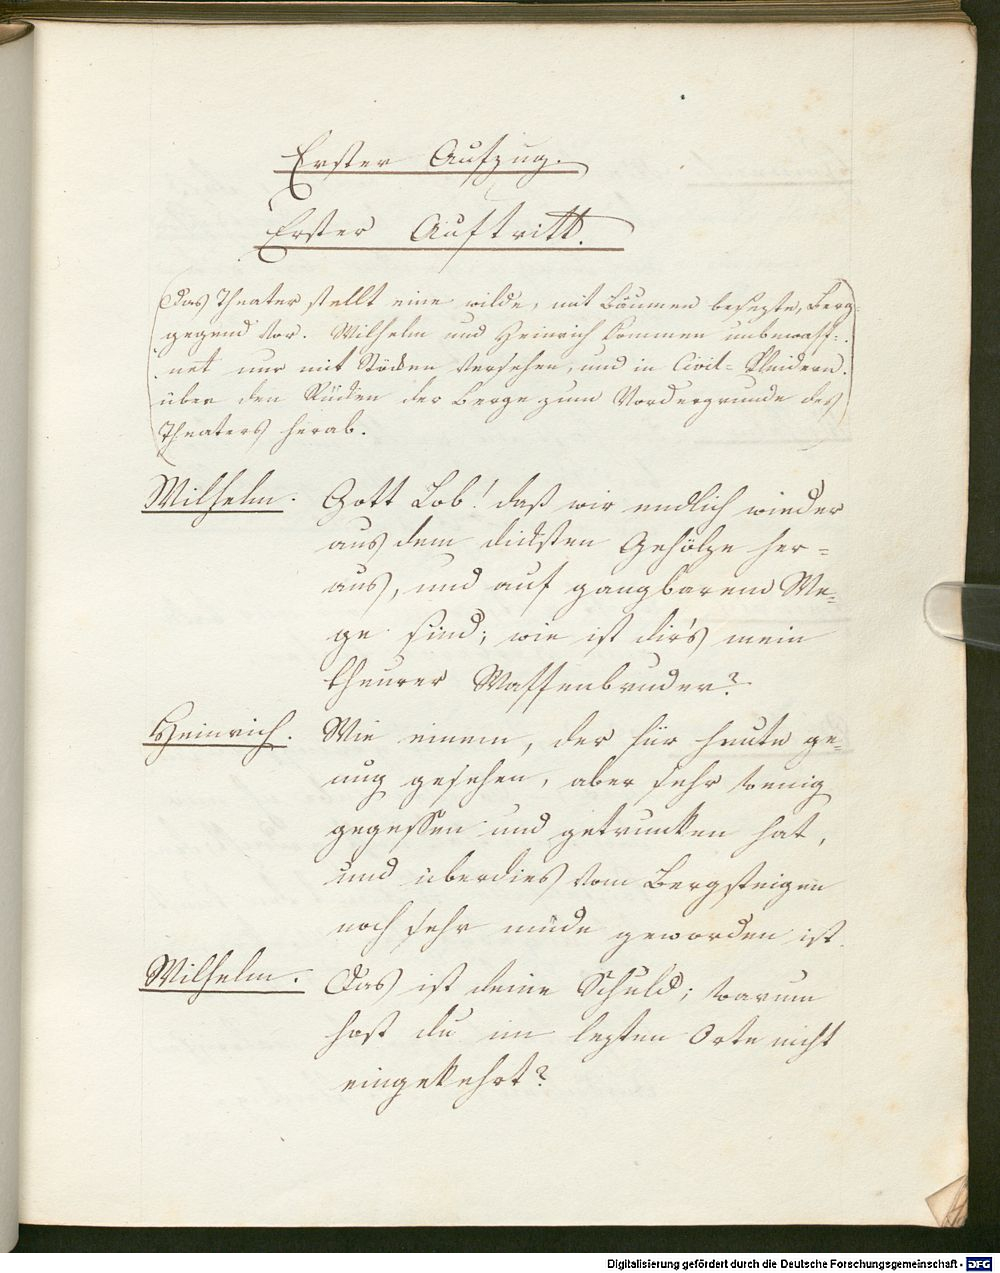 Erster Aufzug.
Erster Auftritt.
(Das Theater stellt eine wilde, mit Bäumen besezte, Berg-
gegend vor. Wilhelm und Heinrich kommen unbewaff-
net nur mit Stöcken versehen, und in Civil-Kleidern
über den Rücken der Berge zum Vordergrunde des
Theaters herab.)
Wilhelm. Gott Lob! daß wir endlich wieder
aus dem dicksten Gehölze her-
aus, und auf gangbarem We-
ge sind; wie ist dir's mein
theurer Waffenbruder?
Heinrich. Wie einem, der für heute ge-
nug gesehen, aber sehr wenig
gegessen und getrunken hat,
und überdies vom Bergsteigen
noch sehr müde geworden ist.
Wilhelm. Das ist deine Schuld; warum
hast du im lezten Orte nicht
eingekehrt?
Digitalisierung gefördert durch die Deutsche Forschungsgemeinschaft - DFG